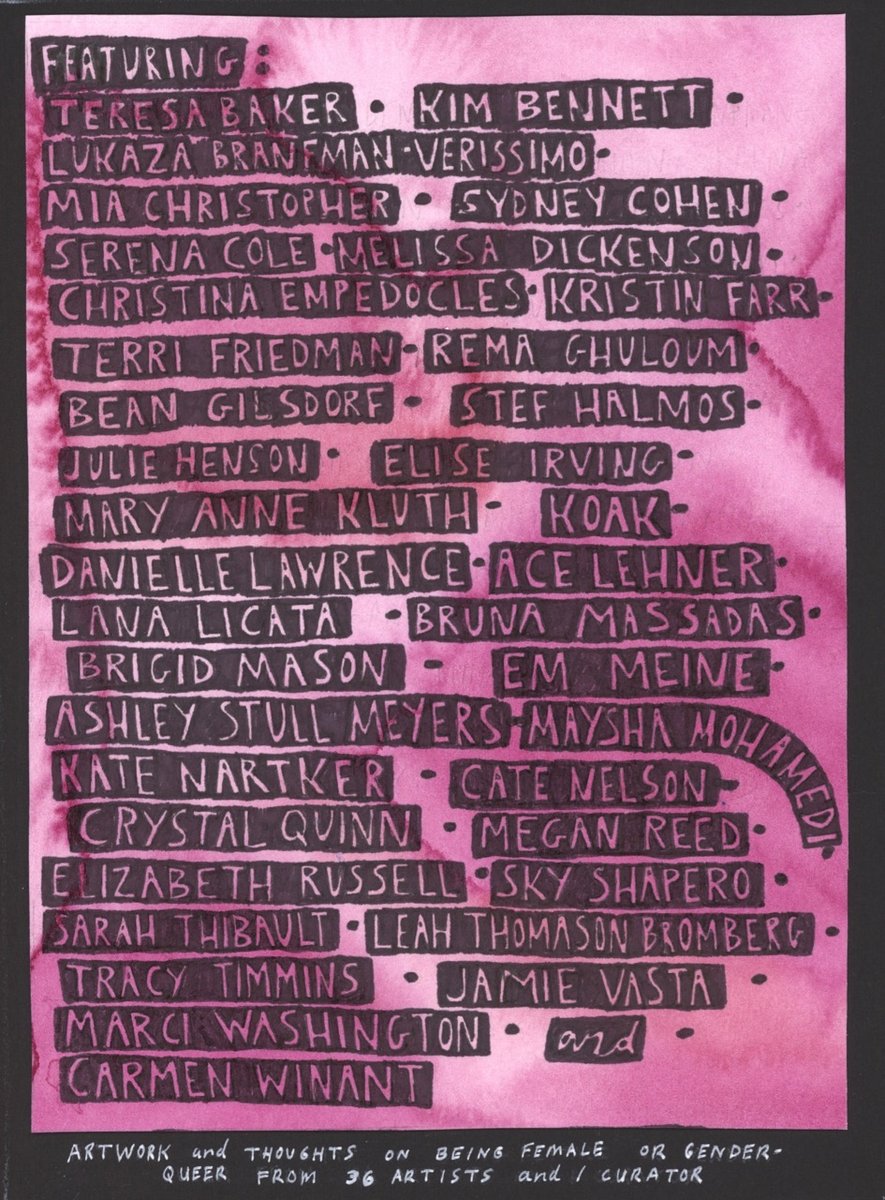 FEATURING:
TERESA BAKER • KIM BENNETT •
LUKAZA BRANFMAN-VERISSIMO •
MIA CHRISTOPHER • SYDNEY COHEN •
SERENA COLE • MELISSA DICKENSON •
CHRISTINA EMPEDOCLES • KRISTIN FARR •
TERRI FRIEDMAN • REMA GHULOUM •
BEAN GILSDORF • STEF HALMOS •
JULIE HENSON • ELISE IRVING •
MARY ANNE KLUTH • KOAK •
DANIELLE LAWRENCE • ACE LEHNER •
LANA LICATA • BRUNA MASSADAS •
BRIGID MASON • EM MEINE •
ASHLEY STULL MEYERS • MAYSHA MOHAMEDI •
KATE NARTKER • CATE NELSON •
CRYSTAL QUINN • MEGAN REED •
ELIZABETH RUSSELL • SKY SHAPERO •
SARAH THIBAULT • LEAH THOMASON BROMBERG •
TRACY TIMMINS • JAMIE VASTA •
MARCI WASHINGTON • and •
CARMEN WINANT
ARTWORK and THOUGHTS ON BEING FEMALE OR GENDER-
QUEER FROM 36 ARTISTS and 1 CURATOR